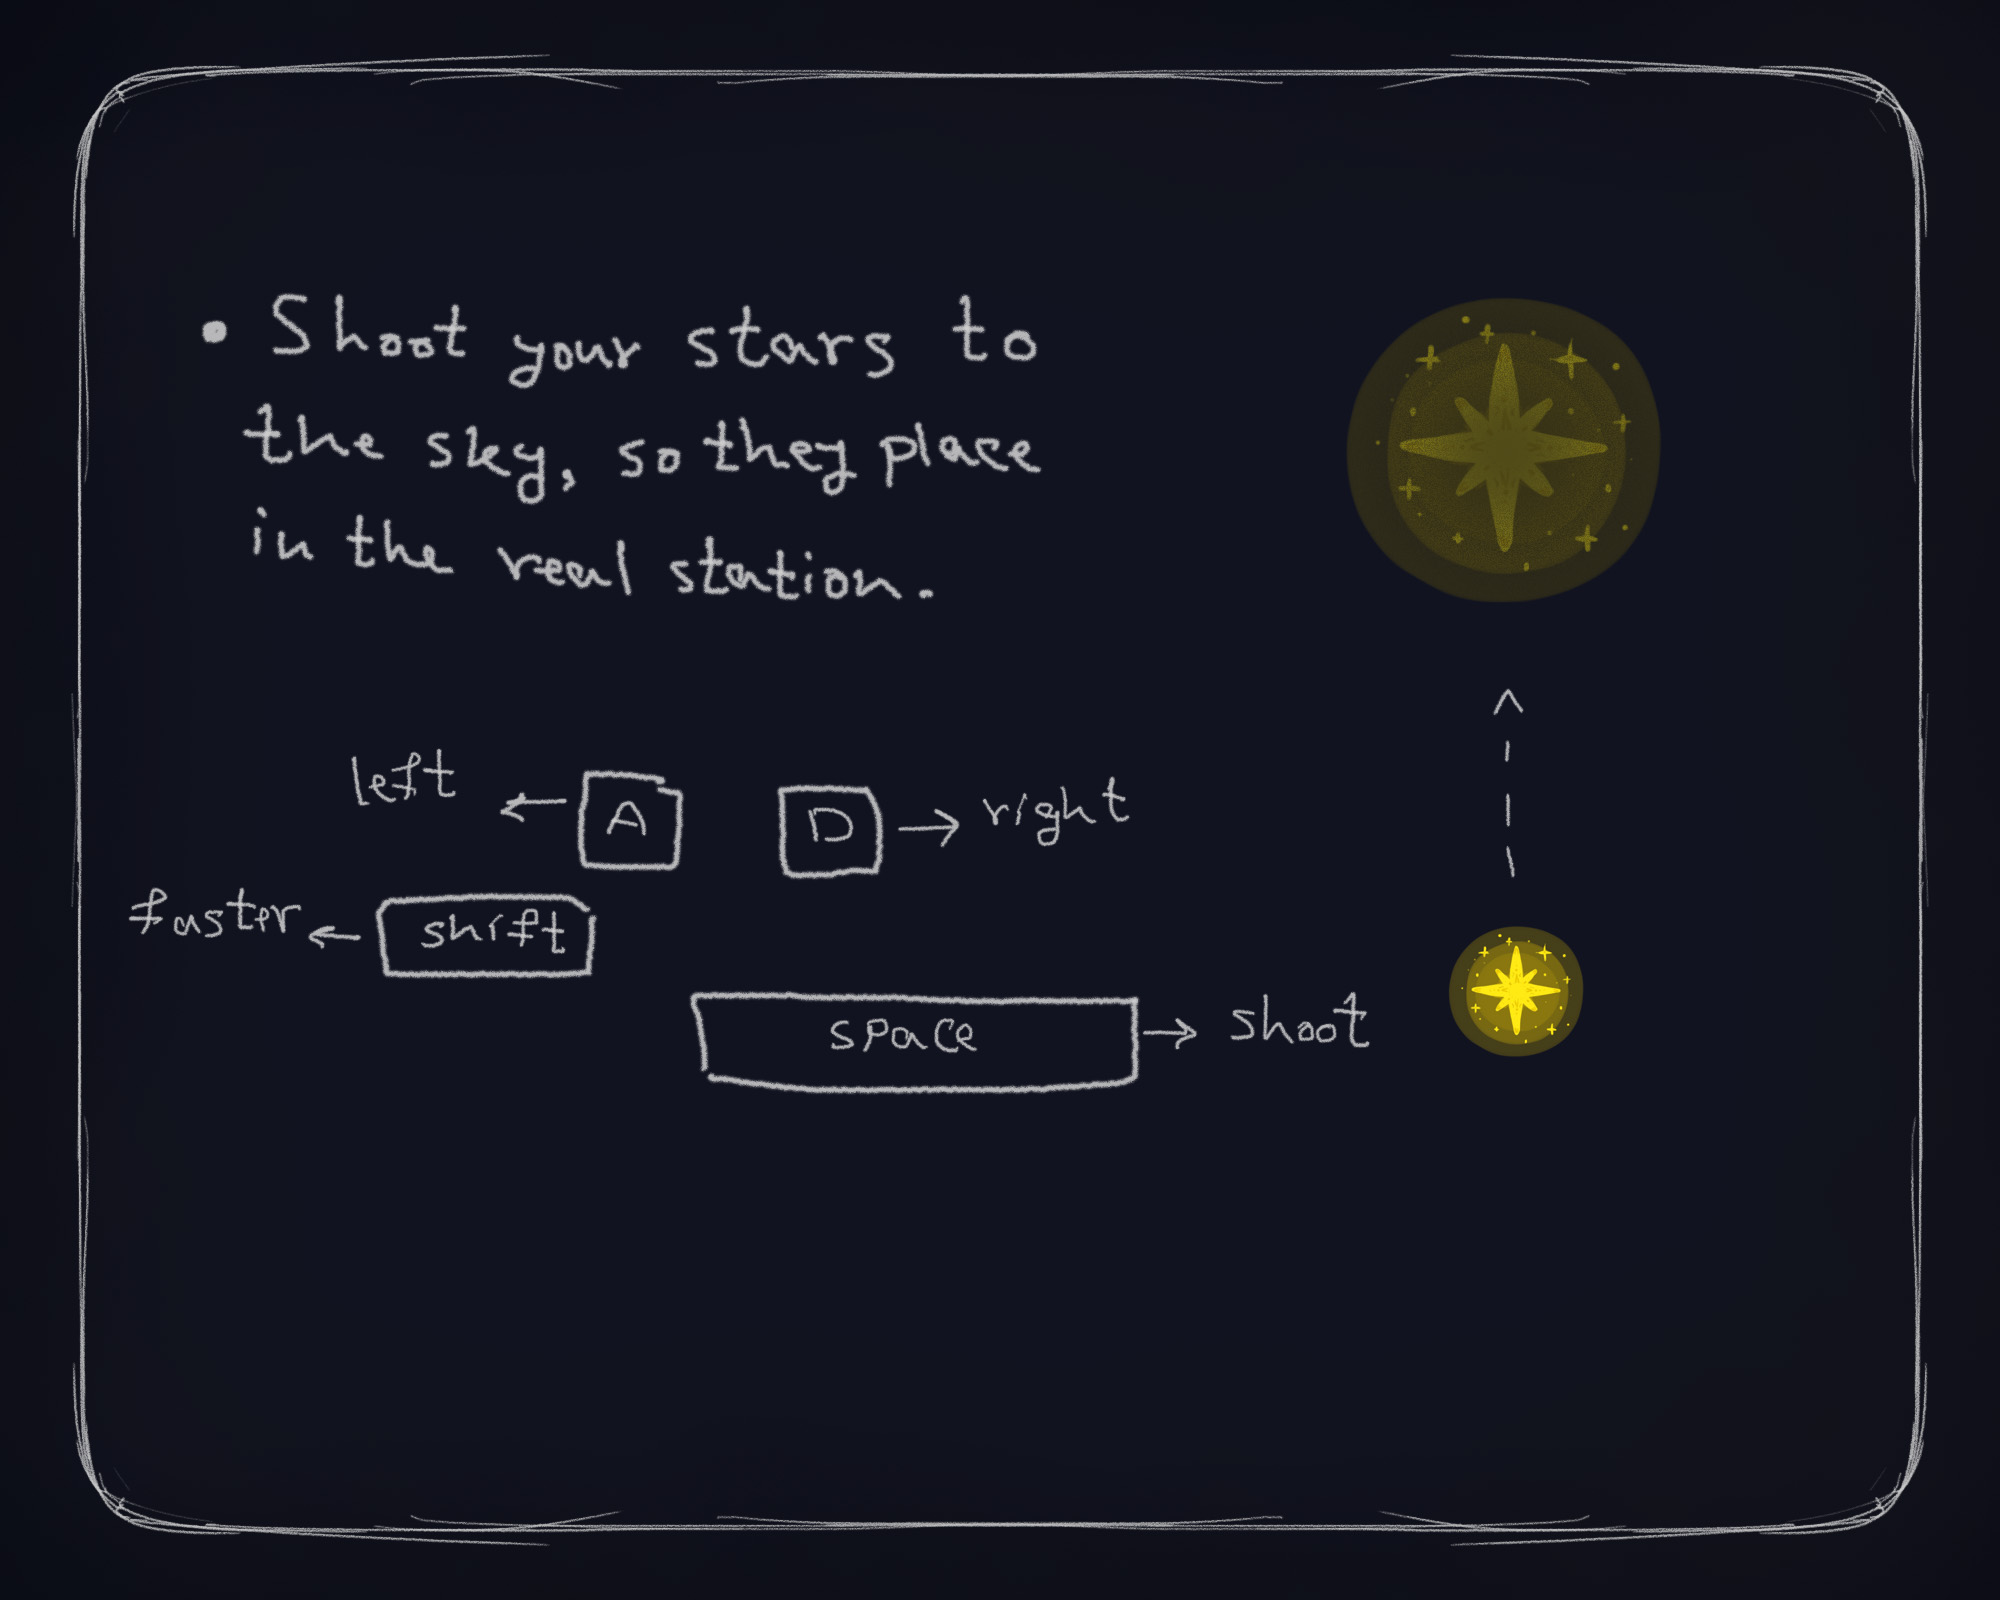 • Shoot your stars to
the sky, so they place
in the real station.
left ← A D → right
faster ← shift
space → shoot